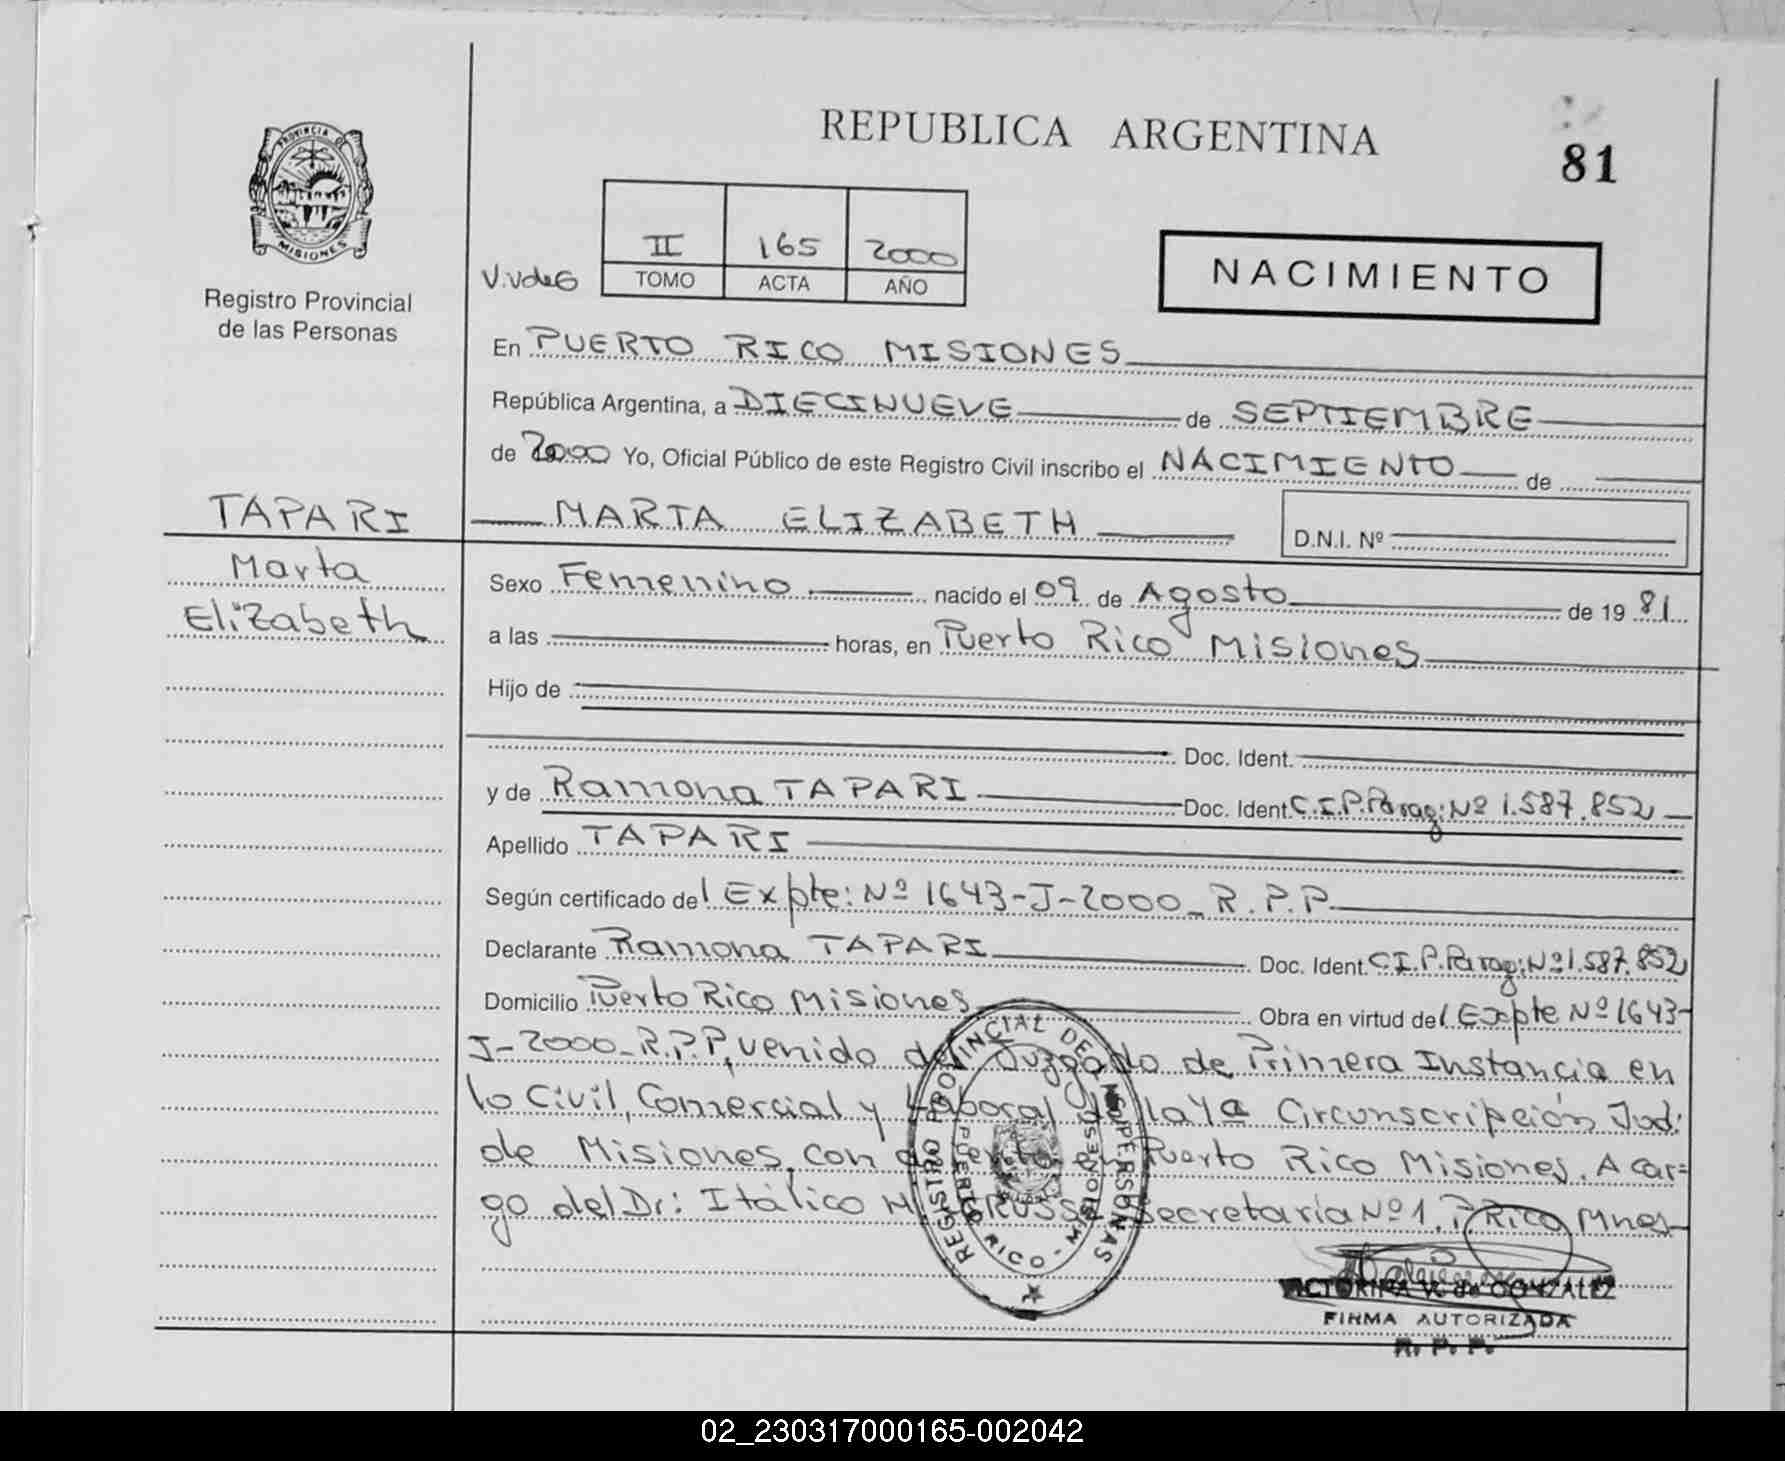 REPUBLICA ARGENTINA
81
PROVINCIA DE
MISIONES
Registro Provincial
de las Personas
V.VdeG
II 165 2000
TOMO ACTA AÑO
NACIMIENTO
En PUERTO RICO MISIONES
República Argentina, a DIECINUEVE de SEPTIEMBRE
de 2000 Yo, Oficial Público de este Registro Civil inscribo el NACIMIENTO de
TAPARI
MARTA ELIZABETH
D.N.I. Nº
Marta
Elizabeth
Sexo Femenino nacido el 09 de Agosto de 19 81
a las horas, en Puerto Rico Misiones
Hijo de
Doc. Ident.
y de Ramona TAPARI Doc. Ident. C.I.P.Parag: Nº 1.587.852
Apellido TAPARI
Según certificado del Expte: Nº 1643-J-2000_R.P.P.
Declarante Ramona TAPARI Doc. Ident. C.I.P.Parag: Nº 1.587.852
Domicilio Puerto Rico Misiones Obra en virtud del Expte Nº 1643-
J-2000_R.P.P, venido del Juzgado de Primera Instancia en
lo Civil, Comercial y Laboral de la 4ª Circunscripción Jud:
de Misiones, con asiento en Puerto Rico Misiones. A car=
go del Dr: Itálico Secretaría Nº 1. P. Rico Mnes
REGISTRO PROVINCIAL DE LAS PERSONAS
PUERTO RICO - MISIONES
VICTORINA V. de GONZALEZ
FIRMA AUTORIZADA
R. P. P.
02_230317000165-002042